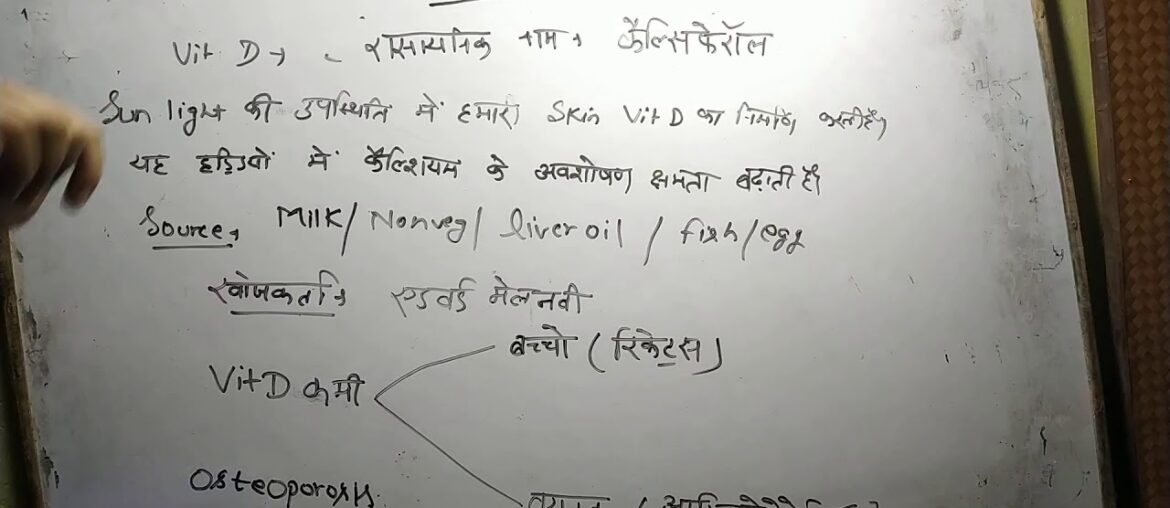 Vit D → रासायनिक नाम → कैल्सिफेरॉल
Sun light की उपस्थिति में हमारी Skin Vit D का निर्माण करती हैं।
यह हड्डियों में कैल्शियम के अवशोषण क्षमता बढ़ाती हैं।
Source → Milk/ Nonveg/ liver oil / fish/egg
खोजकर्ता → एडवर्ड मेलनवी
बच्चो (रिकेट्स)
Vit D कमी
Osteoporosis